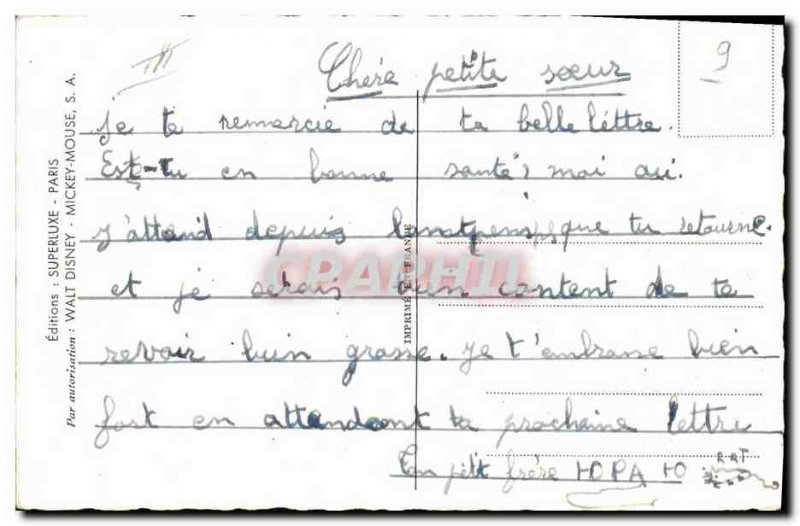 9
Chère petite sœur
je te remercie de ta belle léttre.
Est-tu en bonne santé, moi ausi.
j'attend depuis que tu retourne.
et je serais bien content de te
revoir bien grosse. je t'embrasse bien
fort en attendant ta prochaine lettre
Ton petit frère
RAT
Éditions : SUPERLUXE - PARIS
Par autorisation : WALT DISNEY - MICKEY-MOUSE, S. A.
IMPRIMÉ EN FRANCE
CPAPHIL